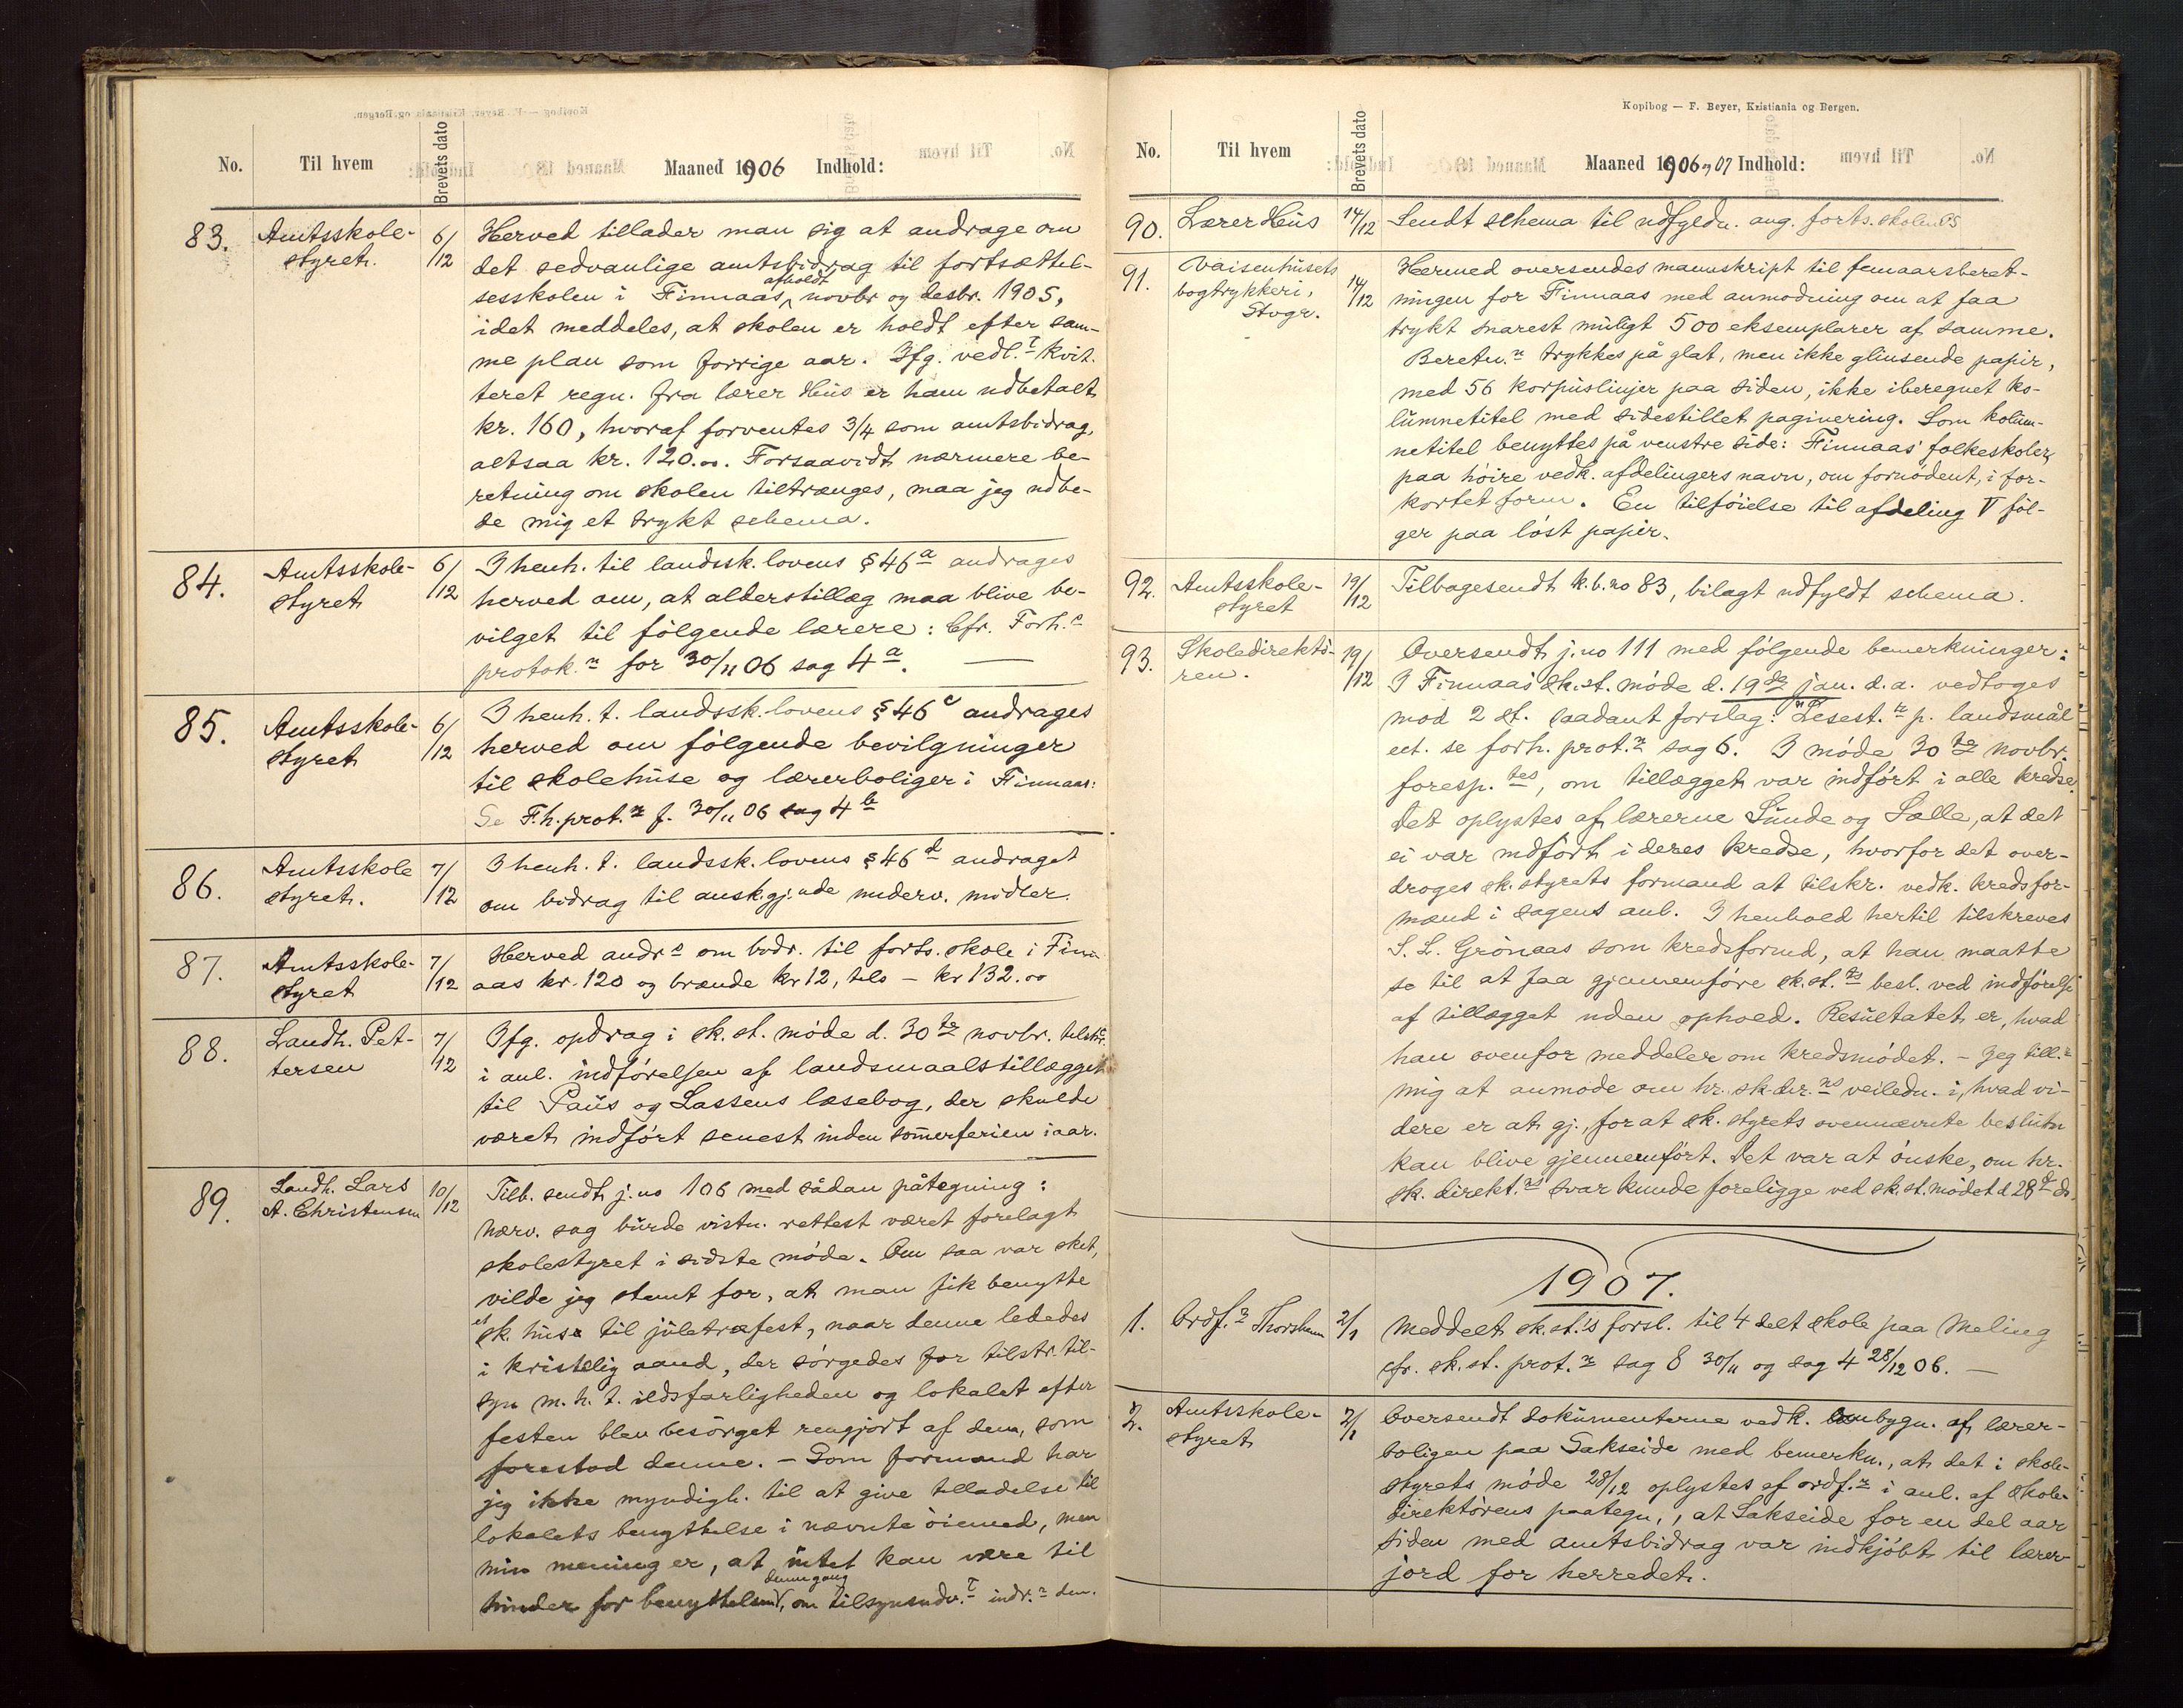 No. Til hvem Brevets dato Maaned 1906 Indhold:
83. Amtsskole- 6/12 Herved tillader man sig at andrage om
styret. det sedvanlige amtsbidrag til fortsættel-
afholdt
sesskolen i Finnaas, novbr og desbr. 1905,
idet meddeles, at skolen er holdt efter sam-
me plan som forrige aar. Ifg. vedl. kvit-
teret regn. fra lærer Hüs er ham udbetalt
kr. 160, hvoraf forventes 3/4 som amtsbidrag,
altsaa kr. 120.00. Forsaavidt nærmere be-
retning om skolen tiltrænges, maa jeg udbe-
de mig et trykt schema.
84. Amtsskole- 6/12 I henh. til landssk. lovens § 46a andrages
styret herved om, at alderstillæg maa blive be-
vilget til følgende lærere: Cfr. Forh.s
protok.n for 30/11 06 sag 4a. —
85. Amtsskole- 6/12 I henh. t. landssk. lovens § 46c andrages
styret herved om følgende bevilgninger
til skolehüse og lærerboliger i Finnaas:
Se F.h. prot.n f. 30/11 06 sag 4b
86. Amtsskole 7/12 I henh. t. landssk. lovens § 46d andraget
styret. om bidrag til ansk.gj.nde underv. midler.
87. Amtsskole- 7/12 Herved andr.s om bidr. til forts. skole i Finn-
styret aas kr. 120 og brænde kr 12, tils – kr 132.00
88. Landh. Pet- 7/12 Ifg. opdrag i sk. st. møde d. 30te novbr. tilskr.
tersen i anl. indførelsen af landsmaalstillægget
til Paüs og Lassens læsebog, der skulde
været indført senest inden sommerferien iaar.
89. Landh. Lars 10/12 Tilb. sendt j. no 106 med sådan påtegning:
A. Christensen nærv. sag bürde vistn. rettest været forelagt
skolestyret i sidste møde. Om saa var sket,
vilde jeg stemt for, at man fik benytte
et
sk. hüse til jületræfest, naar denne lededes
i kristelig aand, der sørgedes for tilstr. til-
syn m. h. t. ildsfarligheden og lokalet efter
festen blev besørget rengjort af dem, som
forestod denne. – Som formand har
jeg ikke myndigh. til at give tilladelse til
lokalets benyttelse i nævnte øiemed, men
min mening er, at intet kan være til
denne gang
hinder for benyttelsen, om tilsynsudv.t indr.r den.
Kopibog — F. Beyer, Kristiania og Bergen.
No. Til hvem Brevets dato Maaned 1906 og 07 Indhold:
90. Lærer Hüs 14/12 Sendt schema til udfyldn. ang. forts. skolen 05
91. Vaisenhüsets 14/12 Hermed oversendes manuskript til femaarsberet-
bogtrykkeri, ningen for Finnaas med anmodning om at faa
Stvgr. trykt snarest müligt 500 eksemplarer af samme.
Beretn.n trykkes på glat, men ikke glinsende papir,
med 56 korpüslinjer paa siden, ikke iberegnet ko-
lümnetitel med sidestillet paginering. Som kolüm-
netitel benyttes på venstre side: Finnaas' folkeskoler,
paa høire vedk. afdelingers navn, om fornødent, i for-
kortet form. En tilføielse til afdeling V föl-
ger paa løst papir.
92. Amtsskole- 19/12 Tilbagesendt k. b. no 83, bilagt udfyldt schema.
styret
93. Skoledirektø- 19/12 Oversendt j. no 111 med følgende bemerkninger:
ren. I Finnaas sk. st. møde d. 19de jan. d. a. vedtoges
mod 2 st. saadant forslag: "Lesest.n p. landsmål
ect. se forh. prot.n sag 6. I møde 30te novbr.
foresp.tes, om tillægget var indført i alle kredse.
Det oplystes af lærerne Sünde og Sælle, at det
ei var indført i deres kredse, hvorfor det over-
droges sk. styrets formand at tilskr. vedk. kredsfor-
mænd i sagens anl. I henhold hertil tilskreves
S. L. Grønaas som kredsformd, at han maatte
se til at faa gjennemføre sk. st.ts besl. ved indførelse
af tillægget uden ophold. Resültatet er, hvad
han ovenfor meddeler om kredsmødet. – Jeg till.r
mig at anmode om hr. sk. dir.ns veiledn. i, hvad vi-
dere er at gj., for at sk. styrets ovennævnte beslütn
kan blive gjennemført. Det var at ønske, om hr.
sk. direkt.ns svar kunde foreligge ved sk. st. mødet d. 28de ds.
1907.
1. Ordf.r Thorsheim 2/1 Meddelt sk. st.'s forsl. til 4 delt skole paa Meling
cfr. sk. st. prot.n sag 8 30/11 og sag 4 28/12 06. —
2. Amtsskole- 2/1 Oversendt dokümenterne vedk. ombygn. af lærer-
styret boligen paa Sakseide med bemerkn., at det i skole-
styrets møde 28/12 oplystes af ordf.r i anl. af skole-
direktørens paategn., at Sakseide for en del aar
siden med amtsbidrag var indkjøbt til lærer-
jord for herredet.